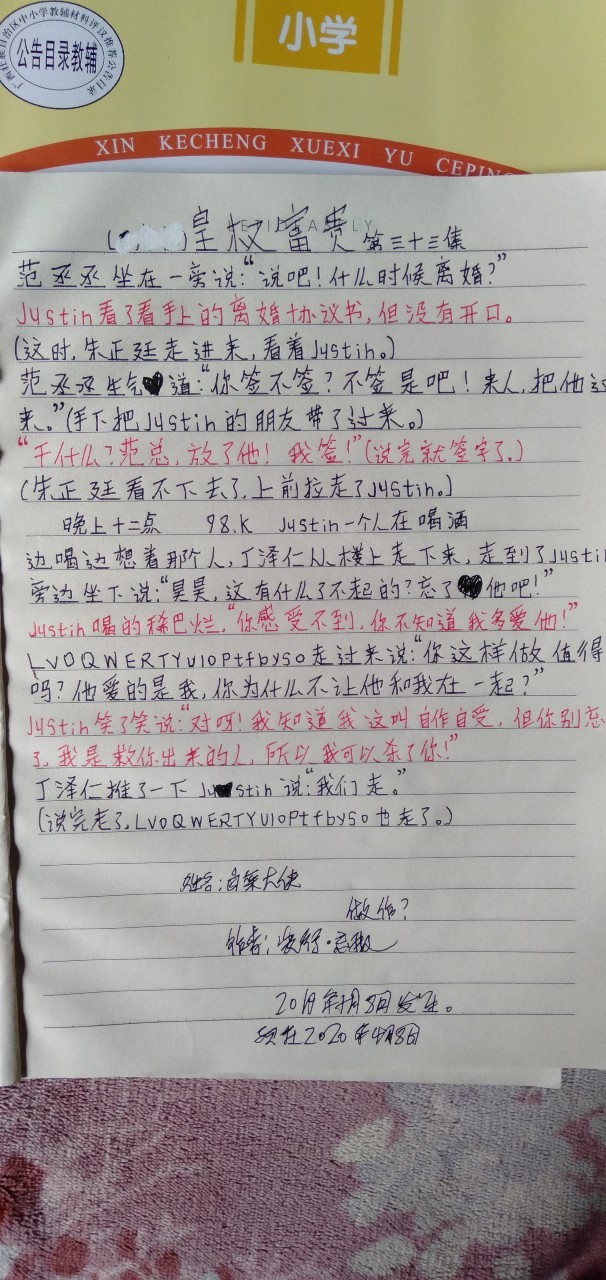 广西壮族自治区中小学教辅材料评议推荐公告目录
公告目录教辅
小学
XIN KECHENG XUEXI YU CEPING
皇权富贵 第三十三集
范丞丞坐在一旁说:“说吧!什么时候离婚?”
Justin看了看手上的离婚协议书,但没有开口。
(这时,朱正廷走进来,看着Justin。)
范丞丞生气道:“你签不签?不签是吧!来人,把他过
来。”(手下把Justin的朋友带了过来。)
“干什么?范总,放了他!我签!”(说完就签字了。)
(朱正廷看不下去了,上前拉走了Justin。)
晚上十二点 98.K Justin一个人在喝酒
边喝边想着那个人,丁泽仁从楼上走下来,走到了Justin
旁边坐下说:“昊昊,这有什么了不起的?忘了他吧!”
Justin喝的稀巴烂,“你感受不到,你不知道我多爱他!”
LVOQWERTYUIOPtfbyso走过来说:“你这样做值得
吗?他爱的是我,你为什么不让他和我在一起?”
Justin笑了笑说:“对呀!我知道我这叫自作自受,但你别忘
了,我是救你出来的人,所以我可以杀了你!”
丁泽仁推了一下Justin说:“我们走。”
(说完走了,LVOQWERTYUIOPtfbyso也走了。)
姓名:白菜大侠
做作?
作者:
发生。
现在2020年4月8日